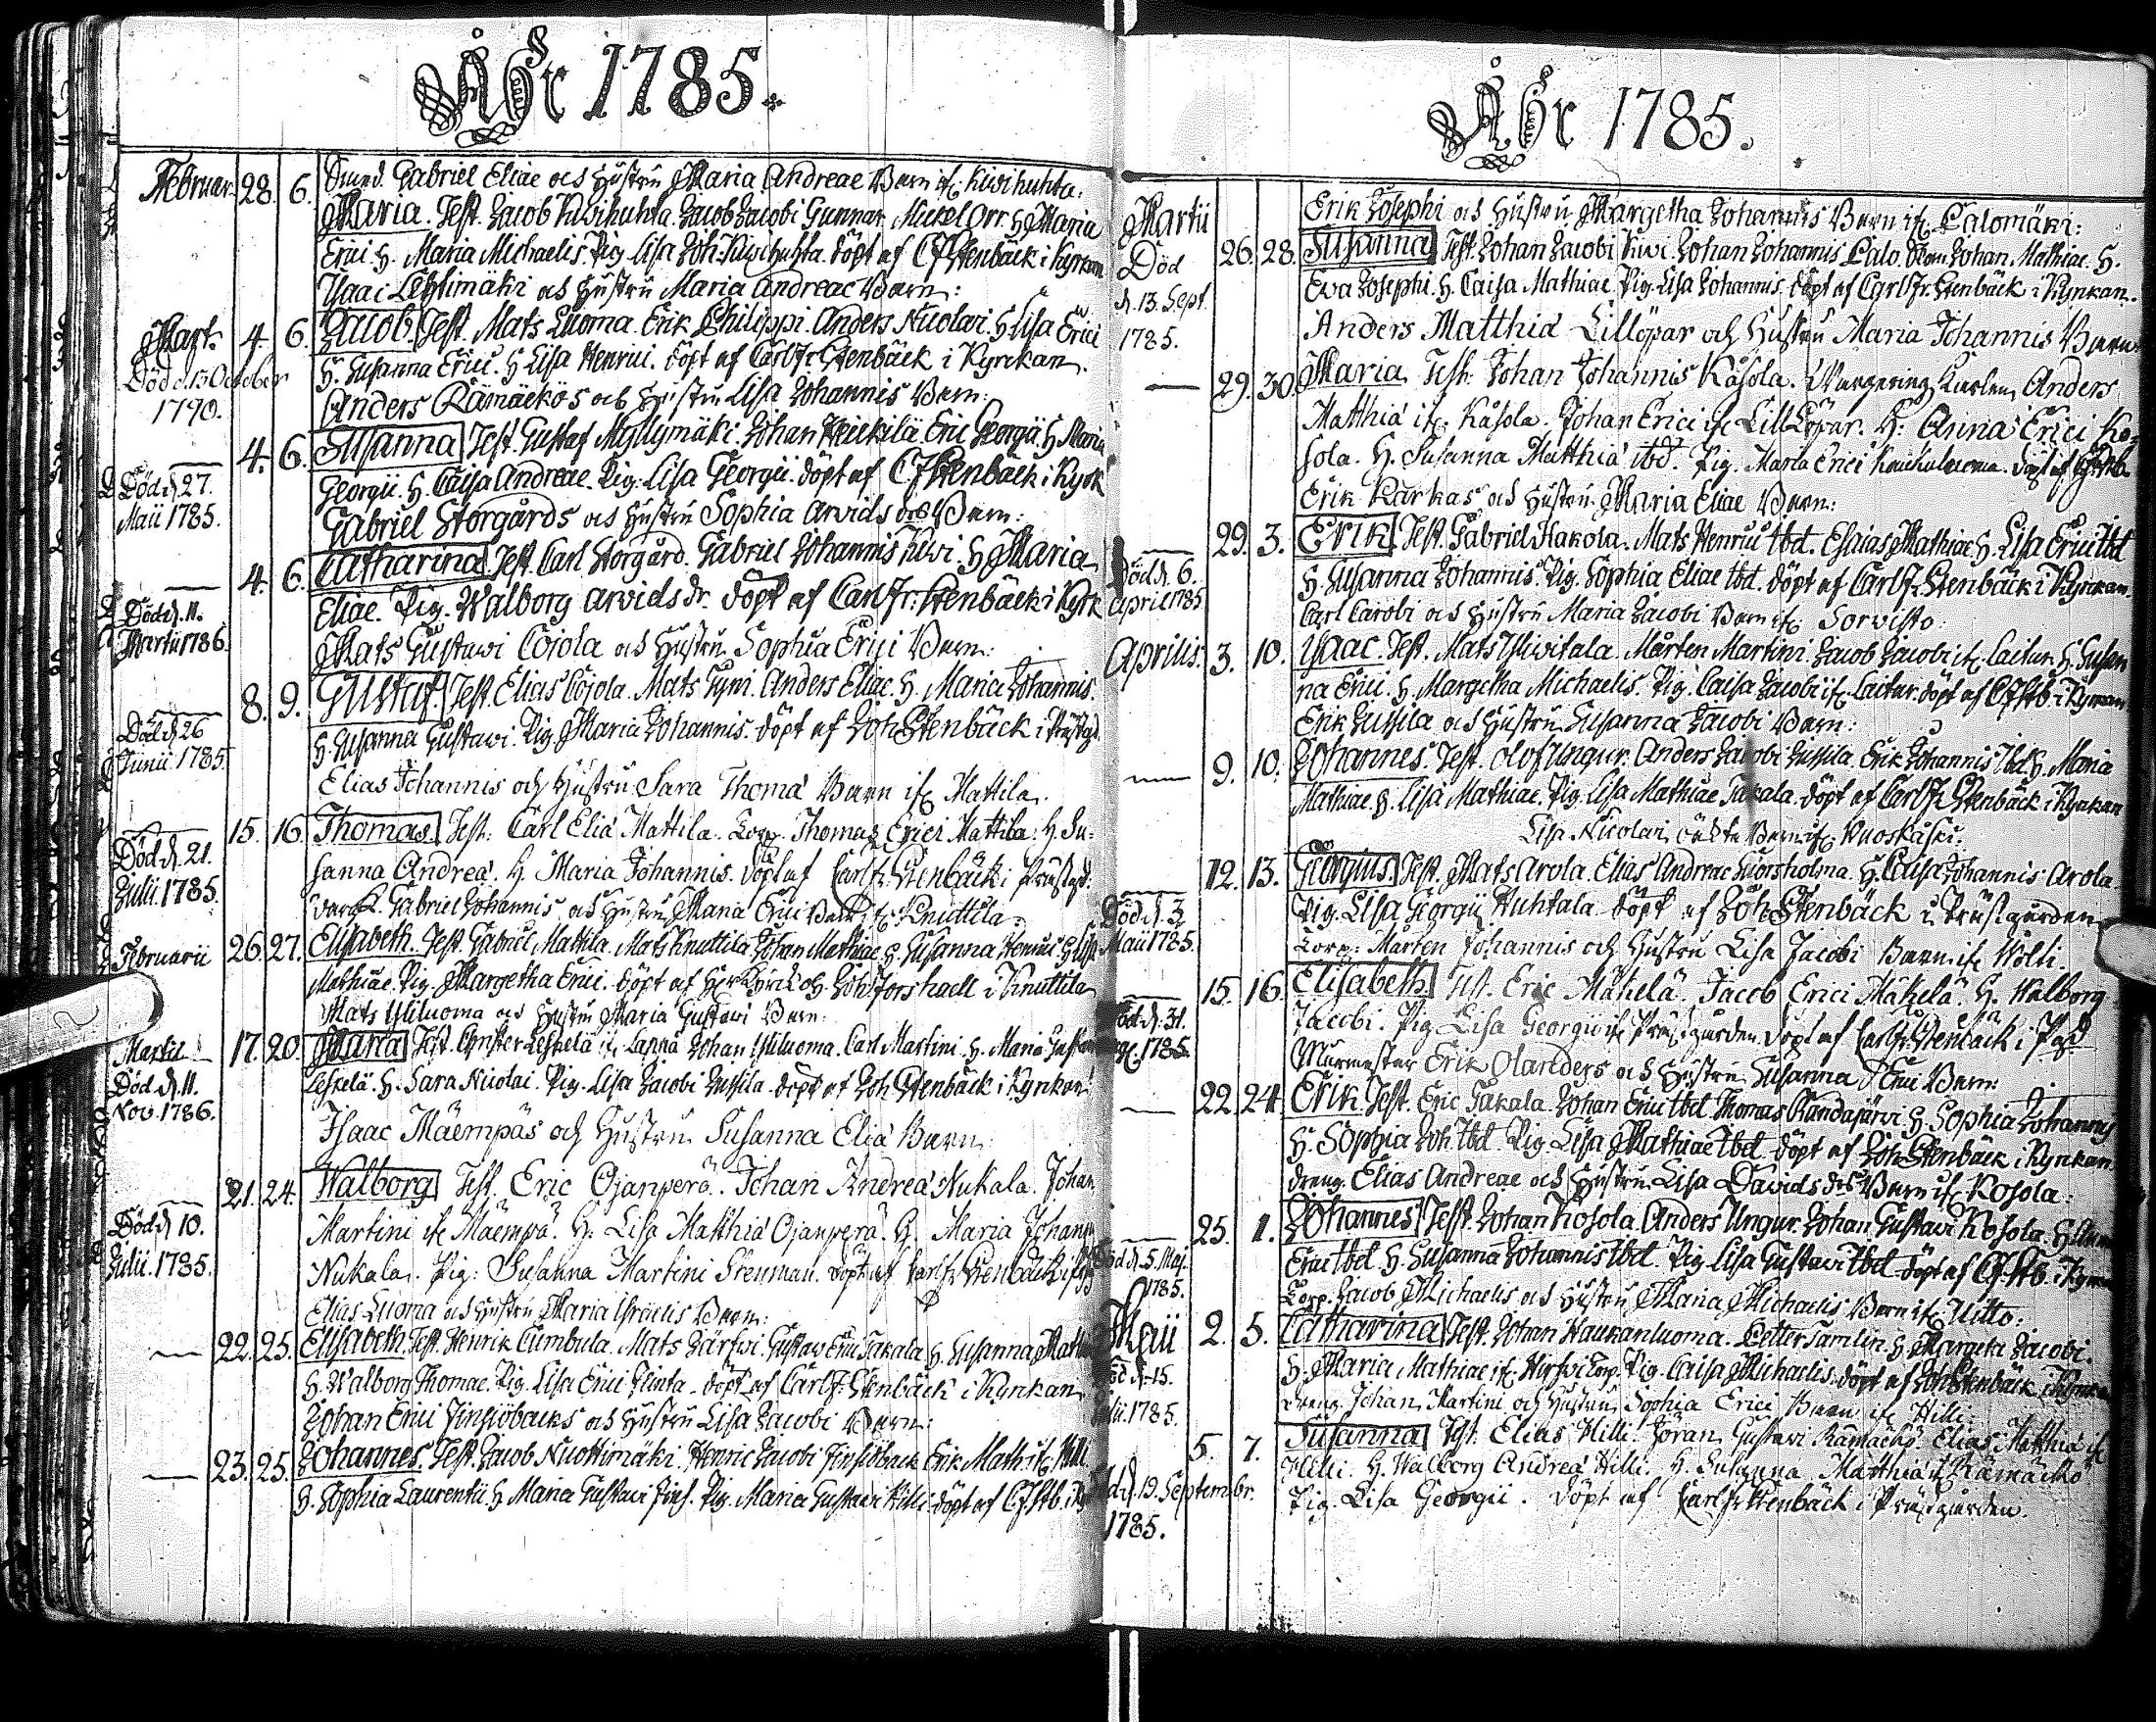 Åhr 1785.
Februar. 28. 6. Smed. Gabriel Eliae och Hustru Maria Andreae Barn ifr. Kiwihuhta:
Maria. Test. Jacob Kiwihuhta. Jacob Jacobi Gunnar. Mickel Orr. H. Maria
Erici H. Maria Michaelis. Pig. Lisa Joh: Kiwihuhta. döpt af CFStenbäck i Kyrkan
Ysaac Lehtimäki och Hustru Maria Andreae Barn:
Mart. 4. 6. Jacob. Test. Mats Luoma. Erik Philippi. Anders Nicolai. H. Lisa Erici
Död d. 13 October
H. Susanna Erici. H. Lisa Henrici. döpt af Carl Fr: Stenbäck i Kyrckan.
1790.
Anders Rämäckös och Hustru Lisa Johannis Barn:
4. 6. Susanna Test. Gustaf Myllymäki. Johan Heickilä. Eric Georgii. H. Maria
Död d. 27.
Georgii. H. Caisa Andreae. Pig. Lisa Georgii. döpt af CFStenbäck i Kyrk
Maii 1785.
Gabriel Storgårds och Hustru Sophia Arvids dr Barn:
4. 6. Catharina Test. Carl Storgård. Gabriel Johannis Kiwi. H. Maria
Död d. 11.
Eliae. Pig. Walborg Arvids dr. döpt af Carl Fr: Stenbäck i Kyrk
Martii 1786.
Mats Gustawi Cojola och Hustru Sophia Erici Barn:
8. 9. Gustaf. Test. Elias Cojola. Mats Gyni. Anders Eliae. H. Maria Johannis.
Död d. 26
H. Susanna Gustawi. Pig. Maria Johannis. döpt af Joh Stenbäck i Prästgd.
Junii 1785.
Elias Johannis och Hustru Sara Thomä Barn ifr. Mattila.
15. 16. Thomas. Test: Carl Eliä Mattila. Torp. Thomas Erici Mattila. H. Su:
Död d. 21.
sanna Andreä. H. Maria Johannis. döpt af Carl Fr Stenbäck i Prästgd:
Julii. 1785.
Gabriel Johannis och Hustru Maria Erici Barn ifr. Knuttila:
Februarii 26. 27. Elisabeth. Test. Gabriel Mattila. Mats Knuttila. Johan Mathiae. H. Susanna Henrici H. Lisa
Mathiae. Pig. Margetha Erici. döpt af Joh Forshaell i Knuttila
Mats Yliluoma och Hustru Maria Gustawi Barn:
Martii 17. 20. Maria Test. Leskelä ifr Lappa Johan Yliluoma. Carl Martini. H. Maria
Död d. 11.
Leskelä. H. Sara Nicolai. Pig. Lisa Jacobi Jussila. döpt af Joh Stenbäck i Kyrkan
Nov. 1786.
Isaac Mäempäs och Hustru Susanna Eliä Barn
21. 24. Walborg Test. Eric Ojanperä. Johan Andreä Nukala. Johan
Död d. 10.
Martini ifr Mäempä. H: Lisa Matthiä Ojanperä. H. Maria Johan
Julii. 1785.
Nukala. Pig: Susanna Martini Stenman. döpt af Carl Fr Stenbäck i
Elias Luoma och Hustru Maria Isräelis Barn:
22. 25. Elisabeth. Test. Henrik Cumbula. Mats Järfwi. Gustaw Erici Takala. H. Susanna
H. Walborg Thomae. Pig. Lisa Erici Flinta. döpt af Carl Fr: Stenbäck i Kyrkan
Johan Erici Finsiöbacks och Hustru Lisa Jacobi Barn:
23. 25. Johannes. Test. Jacob Nuottimäki. Henric Jacobi Finsiöback. Erik Math: ifr. Hilli
H. Sophia Laurentii. H. Maria Gustawi Fins. Pig. Maria Gustawi Hilli. döpt af CFStb. i
Åhr 1785.
Martii Erik Josephi och Hustru Margetha Johannis Barn ifr. Palomäki:
Död 26. 28. Susanna Test. Johan Jacobi Kiwi. Johan Johannis Palo. Johan Mathiae. H.
d. 13. Sept.
Ewa Josephi. H. Caisa Mathiae. Pig. Lisa Johannis. döpt af Carl Fr. Stenbäck i Kyrkan.
1785.
Anders Matthiä Lillöpar och Hustru Maria Johannis Barn
29. 30. Maria Test: Johan Johannis Kåsola. Anders
Matthiä ifr. Kåsola. Johan Erici ifr Lill Löpar. H: Anna Erici Ko-
sola. H. Susanna Matthiä ibd. Pig. Maria Erici döpt af
Erik Karkas och Hustru Maria Eliae Barn:
29. 3. Erik. Test. Gabriel Hakola. Mats Henrici ibd. Esaias Mathiae H. Lisa Erici ibd
Död d. 6.
H. Susanna Johannis. Pig. Sophia Eliae ibd. döpt af Carl Fr Stenbäck i Kyrkan.
April 1785
Carl Carobi och Hustru Maria Jacobi Barn ifr. Sorvisto:
Aprilis. 3. 10. Ysaac. Test. Mats Yliwitala. Mårten Martini. Jacob Jacobi ifr. Laitur. H. Susan
na Erici. H. Margetha Michaelis. Pig. Caisa Jacobi ifr. Laitur. döpt af CFStb. i Kyrkan
Erik Jussila och Hustru Susanna Jacobi Barn:
9. 10. Johannes. Test. Olof Ungur. Anders Jacobi Jussila. Erik Johannis ibd. H. Maria
Mathiae. H. Lisa Mathiae. Pig. Lisa Mathiae Takala. döpt af Carl Fr Stenbäck i Kyrkan
Lisa Nicolai oächta Barn ifr. Ruoskåski:
12. 13. Georgius. Test. Mats Arola. Elias Andreae Korsholma. H. Caisa Johannis Arola
Död d. 3.
Pig. Lisa Georgii Huhtala. döpt af Joh Stenbäck i Prästgården
Maii 1785.
Torp: Mårten Johannis och Hustru Lisa Jacobi Barn ifr Wålti
15. 16. Elisabeth. Test. Eric Mäkelä. Jacob Erici Mäkelä. H. Walborg
Död d. 31.
Jacobi. Pig Lisa Georgii ifr Prästgården. döpt af Carl Fr Stenbäck i Pgd
1785.
Murmestar Erik Olanders och Hustru Susanna Erici Barn:
22. 24. Erik. Test. Eric Takala. Johan Erici ibd. Thomas Randajärvi. H. Sophia Johannis
H. Sophia Joh. ibd. Pig. Lisa Mathiae ibd. döpt af Joh Stenbäck i Kyrkan
Dreng. Elias Andreae och Hustru Lisa Davids dr Barn ifr. Kosola:
25. 1. Johannes Test. Johan Kosola. Anders Ungur. Johan Gustawi Kosola. H.
Död d. 5. Maj.
Erici ibd. H. Susanna Johannis ibd. Pig. Lisa Gustawi ibd. döpt af CFStb. i Kyrk
1785.
Torp. Jacob Michaelis och Hustru Maria Michaelis Barn ifr. Uitto:
Maii 2. 5. Catharina Test. Johan Haukanluoma. Petter Tamlin. H. Margeta Jacobi.
d. 15.
H. Maria Mathiae ifr. Hirfwi Torp. Pig. Caisa Michaelis. döpt af Joh Stenbäck i Kyrk
Julii. 1785.
Dreng. Johan Martini och Hustru Sophia Erici Barn ifr Hilli.
5. 7. Susanna Test. Elias Hilli. Jöran Gustavi Rämäckö. Elias Matthiä ifr
Hilli. H. Walborg Andreä Hilli. H. Susanna Matthiä ifr Rämäckö
d. 19. Septembr.
Pig. Lisa Georgii. döpt af Carl Fr Stenbäck i Prästgården.
1785.